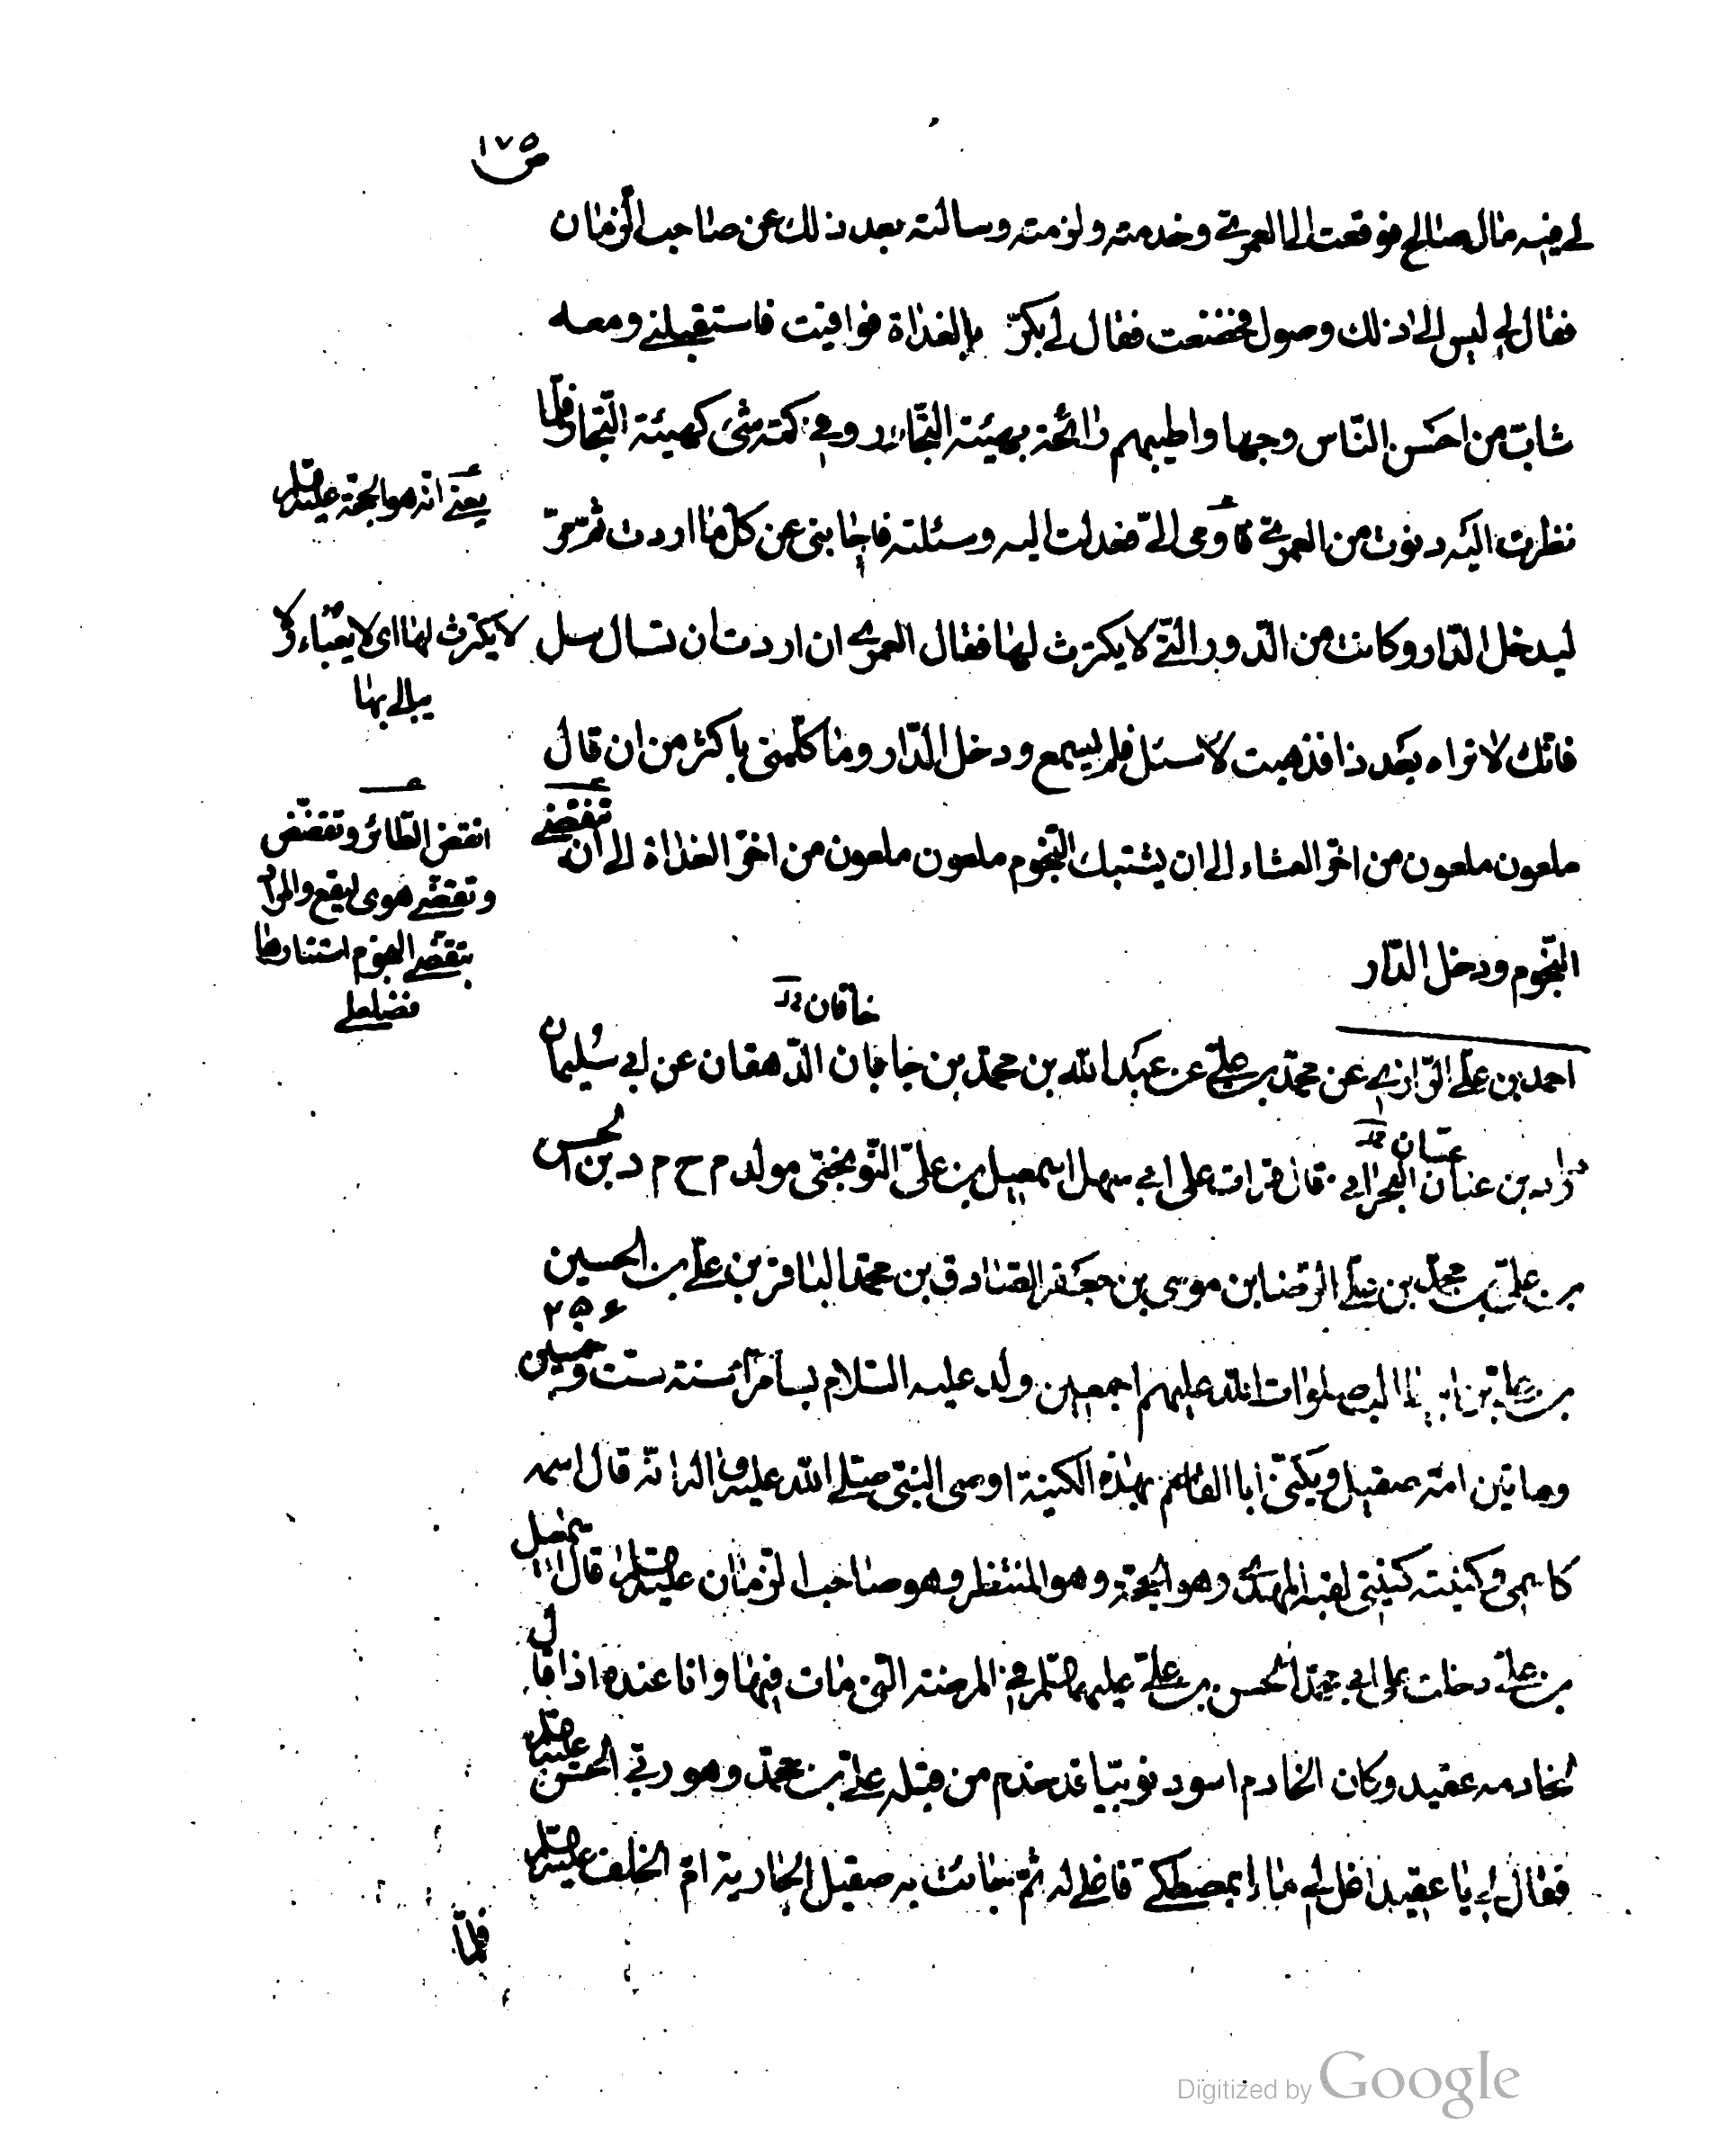 ص ١٧٥
لي فيه مال صالح فوقعت الى العمري وخدمته ولزمته وسألته بعد ذلك عن صاحب الزمان
فقال لي ليس الى ذلك وصول فخضعت فقال لي بكّر بالغداة فوافيت فاستقبلني ومعه
شابّ من احسن النّاس وجها واطيبهم رائحة بهيئة التجّار وفي كمّه شئ كهيئة التّجار فلمّا
نظرت اليه دنوت من العمري فاومى الىّ فعدلت اليه وسئلته فاجابنى عن كل ما اردت ثم مرّ
يعني انه هو الحجة عليه السلم
ليدخل الدّار وكانت من الدّور الّتي لا يكترث لها فقال العمري ان اردت ان تسال سل
لا يكترث لها اى لا يعبّاء ولا
يبالي بها
فانّك لا تراه بعد ذا فذهبت لاسئل فلم يسمع ودخل الدّار وما كلّمنى باكثر من ان قال
ملعون ملعون من اخّر العشاء الى ان يشتبك النّجوم ملعون ملعون من اخّر الغداة الى ان تنقضي
انقض الطّائر وتقضّض
وتقضّى هوى ليقع والمراد
بتقضّي النجوم استنارها
فضلعلي
النّجوم ودخل الدّار
خاقان خ
احمد بن علي الرّازي عن محمّد بن عليّ عن عبد الله بن محمّد بن جابان الدّهقان عن ابي سليمان
عتبان خ
داود بن عنان البحراني قال قرات على ابي سهل اسمعيل بن عليّ النّوبختى مولد م ح م د بن الحسن
بن عليّ بن محمّد بن علي الرّضا بن موسى بن جعفر الصّادق بن محمّد الباقر بن عليّ بن الحسين
٢٥٦
بن عليّ بن ابي طالب صلوات الله عليهم اجمعين ولد عليه السّلام بسامرّا سنة ستّ وخمسين
وماتين امّه صقيل ويكنّى ابا القاسم بهذه الكنية اوصى النبيّ صلّى الله عليه واله انّه قال اسمه
كاسمى وكنيته كنيتي لقبه المهدى وهو الحجّة وهو المنتظر وهو صاحب الزّمان عليه السلم قال اسمعيل
بن عليّ دخلت على ابي محمّد الحسن بن عليّ عليهما السّلم في المرضة التى مات فيها وانا عنده اذ قال
لخادمه عقيد وكان الخادم اسود نوبيّا قد خدم من قبله عليّ بن محمّد وهو ربّي الحسن عليه السلم
فقال له يا عقيد اغل لي ماء بمصطكي فاغلى له ثمّ جائت به صقيل الجارية امّ الخلف عليه السلم
فلمّا
Digitized by Google